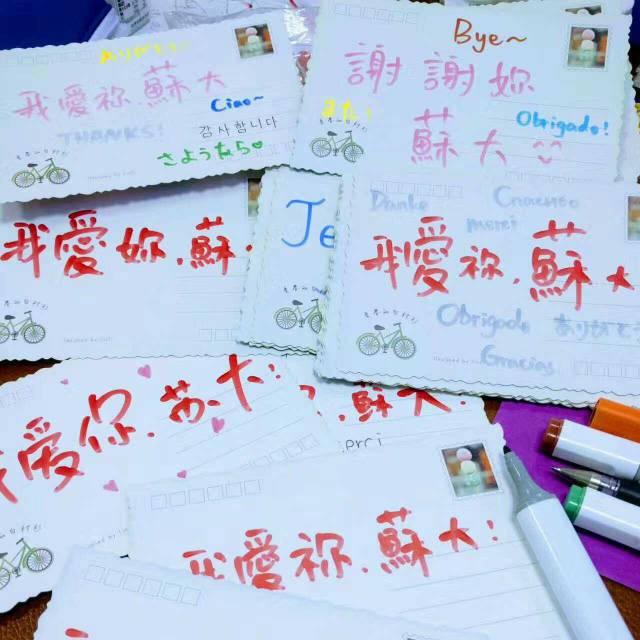 ありがとう
我愛祢.蘇大
Ciao~
THANKS!
감사합니다
さようなら♡
Bye~
謝謝妳
また!
Obrigado!
蘇大♡
我愛妳.蘇
Je
Danke
merci
我愛祢.蘇大
Obrigado
ありがとう
Gracias
愛你.苏大!
蘇大
erci
我愛祢.蘇大!